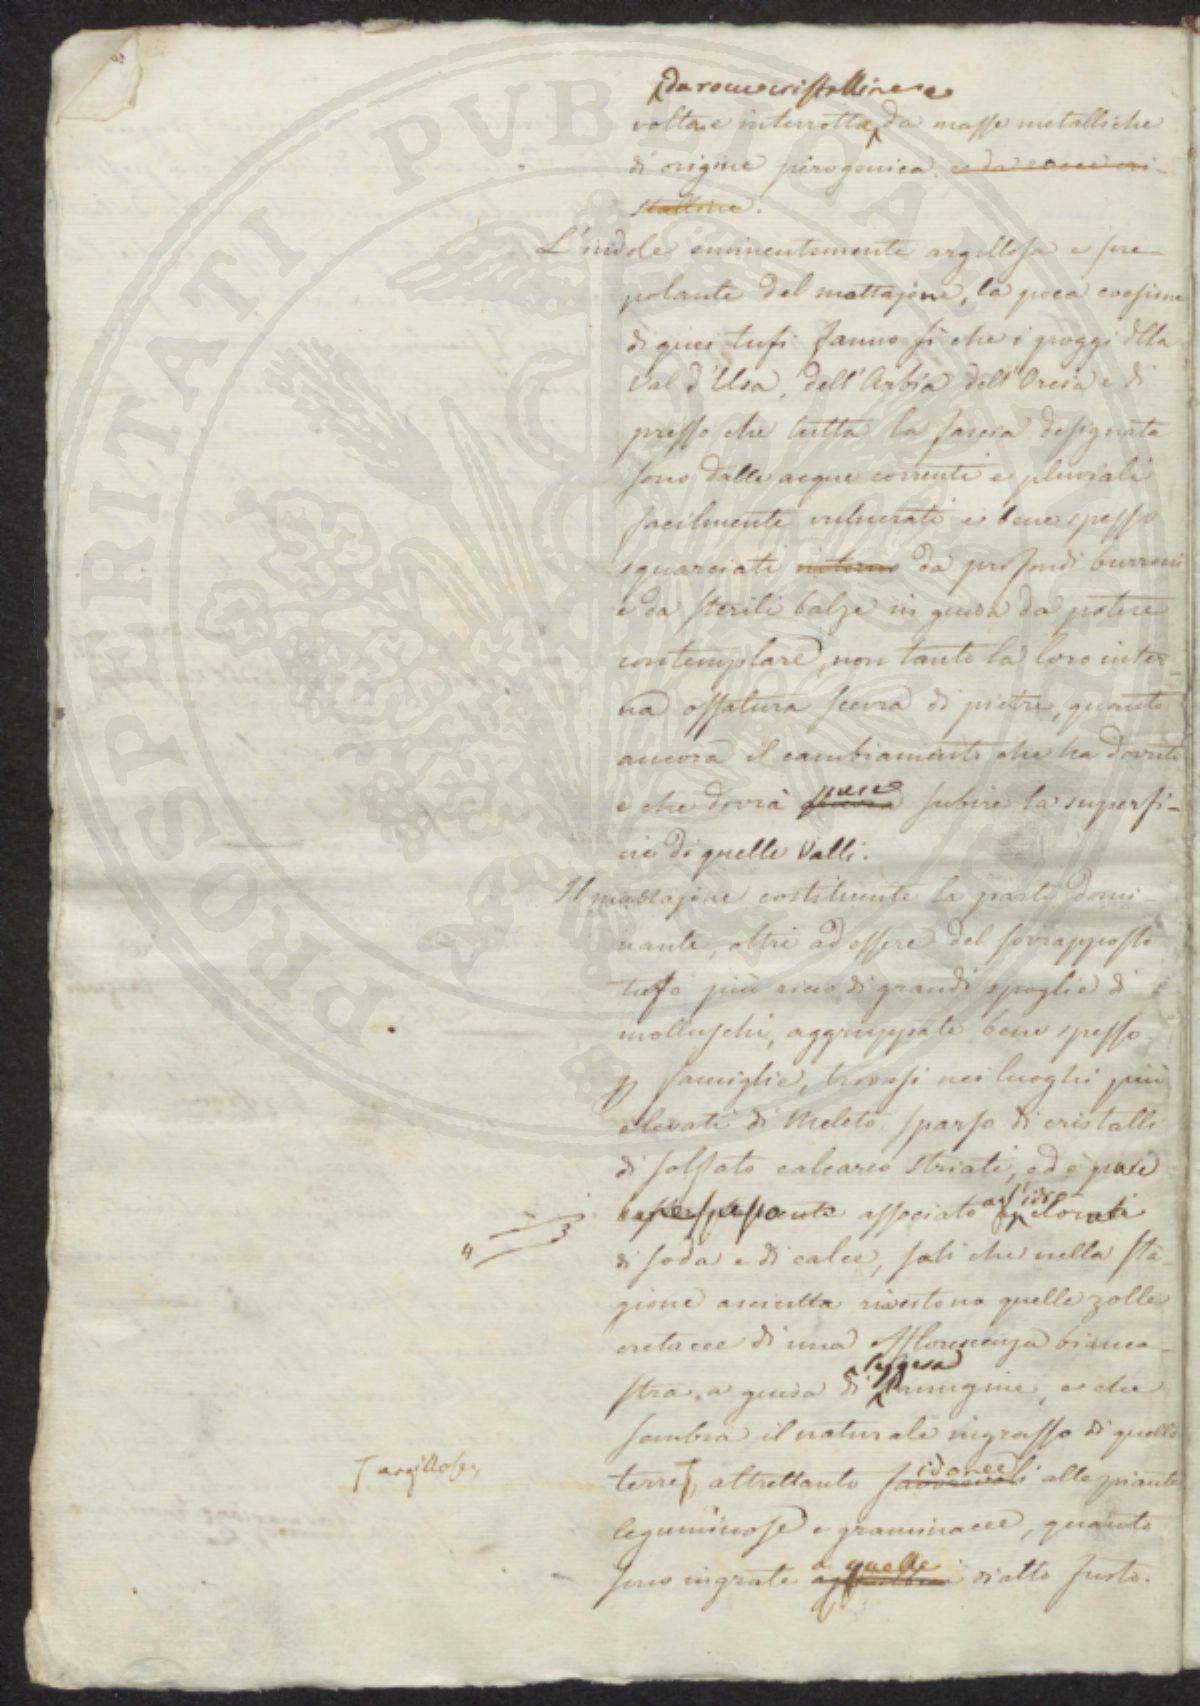 da rocce cristalline e
volta e interrotta da masse metalliche
di origine pirogenica. e da rocce cri-
stalline.
L'indole eminentemente argillosa e scre-
polante del mattajone, la poca coesione
di quei tufi fanno sì che i poggi della
Val d'Elsa, dell'Arbia dell'Orcia e di
presso che tutta la fascia designata
sono dalle acque correnti e pluviali
facilmente vulnerati e bene spesso
squarciati intorno da profondi burroni
e da sterili balze in guisa da potere
contemplare, non tanto la loro inter-
na ossatura scevra di pietre, quanto
ancora il cambiamento che ha dovuto
e che dovrà pure subire la superfi-
cie di quelle Valli.
Il mattajone costituente la parte domi-
nante, oltre ad essere del sovrapposto
tufo più ricco di grandi spoglie di
molluschi, aggruppate bene spesso
p famiglie, trovasi nei luoghi più
elevati di Meleto sparso di cristalli
di solfato calcareo striati, ed è pure
associato agl'idroclorati
di soda e di calce, sali che nella sta-
gione asciutta rivestono quelle zolle
cretacee di una efflorescenza bianca-
stra, a guisa di leggera lanugine, e che
sembra il naturale ingrasso di quelle
terre argillose, altrettanto favorevoli idonee alle piante
leguminose e graminacee, quanto
sono ingrate a quelle di alto fusto.
PROSPERITATI PUBLICAE